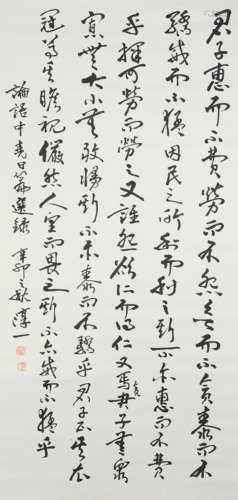 君子惠而不費勞而不怨欲而不貪泰而不
驕威而不猛因民之所利而利之斯不亦惠而不費
乎擇可勞而勞之又誰怨欲仁而得仁又焉貪君子無眾
寡無大小無敢慢斯不亦泰而不驕乎君子正其衣
冠尊其瞻視儼然人望而畏之斯不亦威而不猛乎
論語中堯曰篇選錄 辛卯之秋 淳一